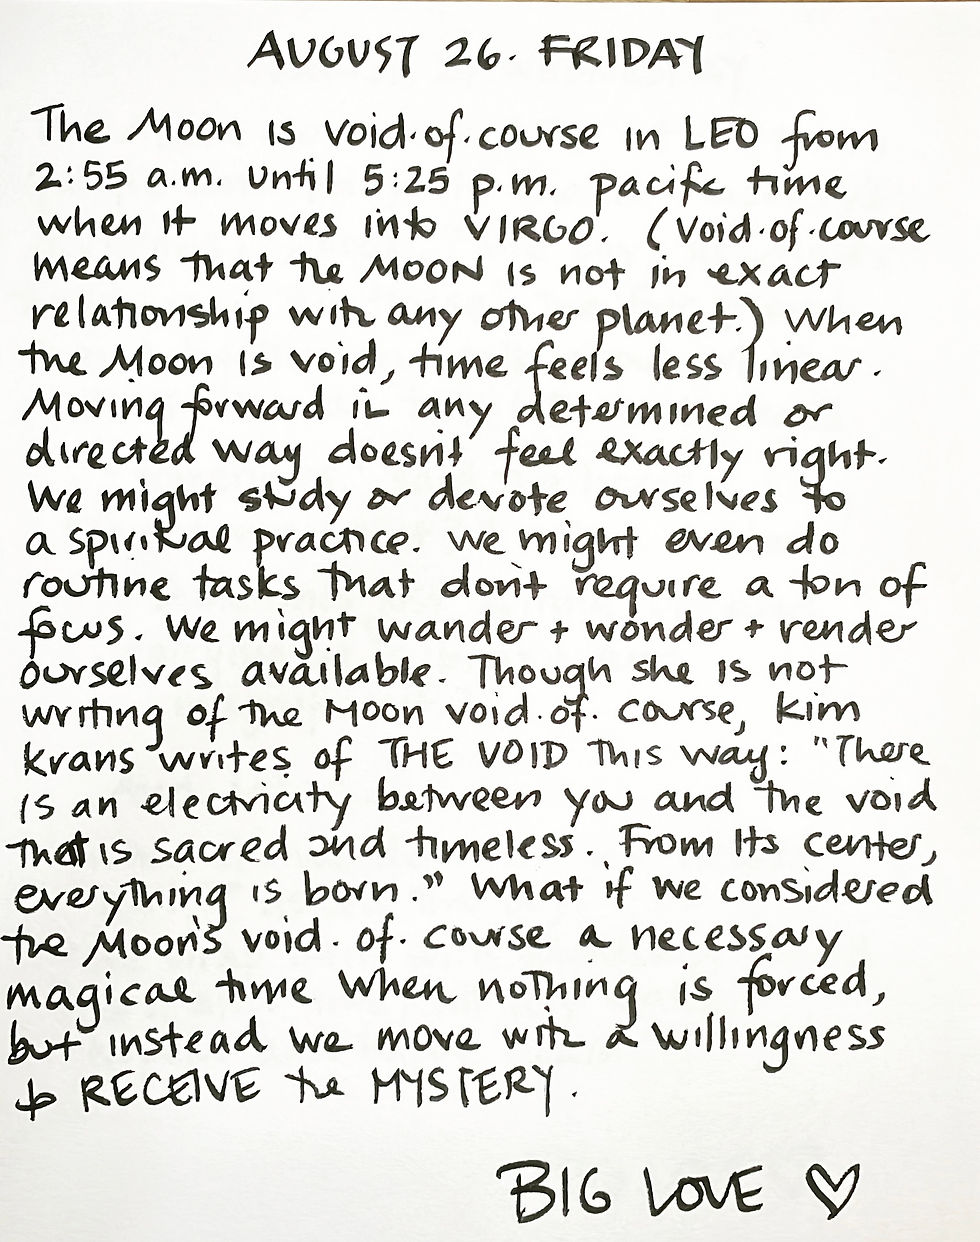 AUGUST 26. FRIDAY
The Moon is void.of.course in LEO from
2:55 a.m. until 5:25 p.m. pacific time
when it moves into VIRGO. (Void.of.course
means that the MOON is not in exact
relationship with any other planet.) When
the Moon is void, time feels less linear.
Moving forward in any determined or
directed way doesn't feel exactly right.
We might study or devote ourselves to
a spiritual practice. We might even do
routine tasks that don't require a ton of
focus. We might wander + wonder + render
ourselves available. Though she is not
writing of the Moon void.of.course, Kim
Krans writes of THE VOID this way: "There
is an electricity between you and the void
that is sacred and timeless. From its center,
everything is born." What if we considered
the Moon's void.of.course a necessary
magical time when nothing is forced,
but instead we move with a willingness
to RECEIVE the MYSTERY.
BIG LOVE ♡